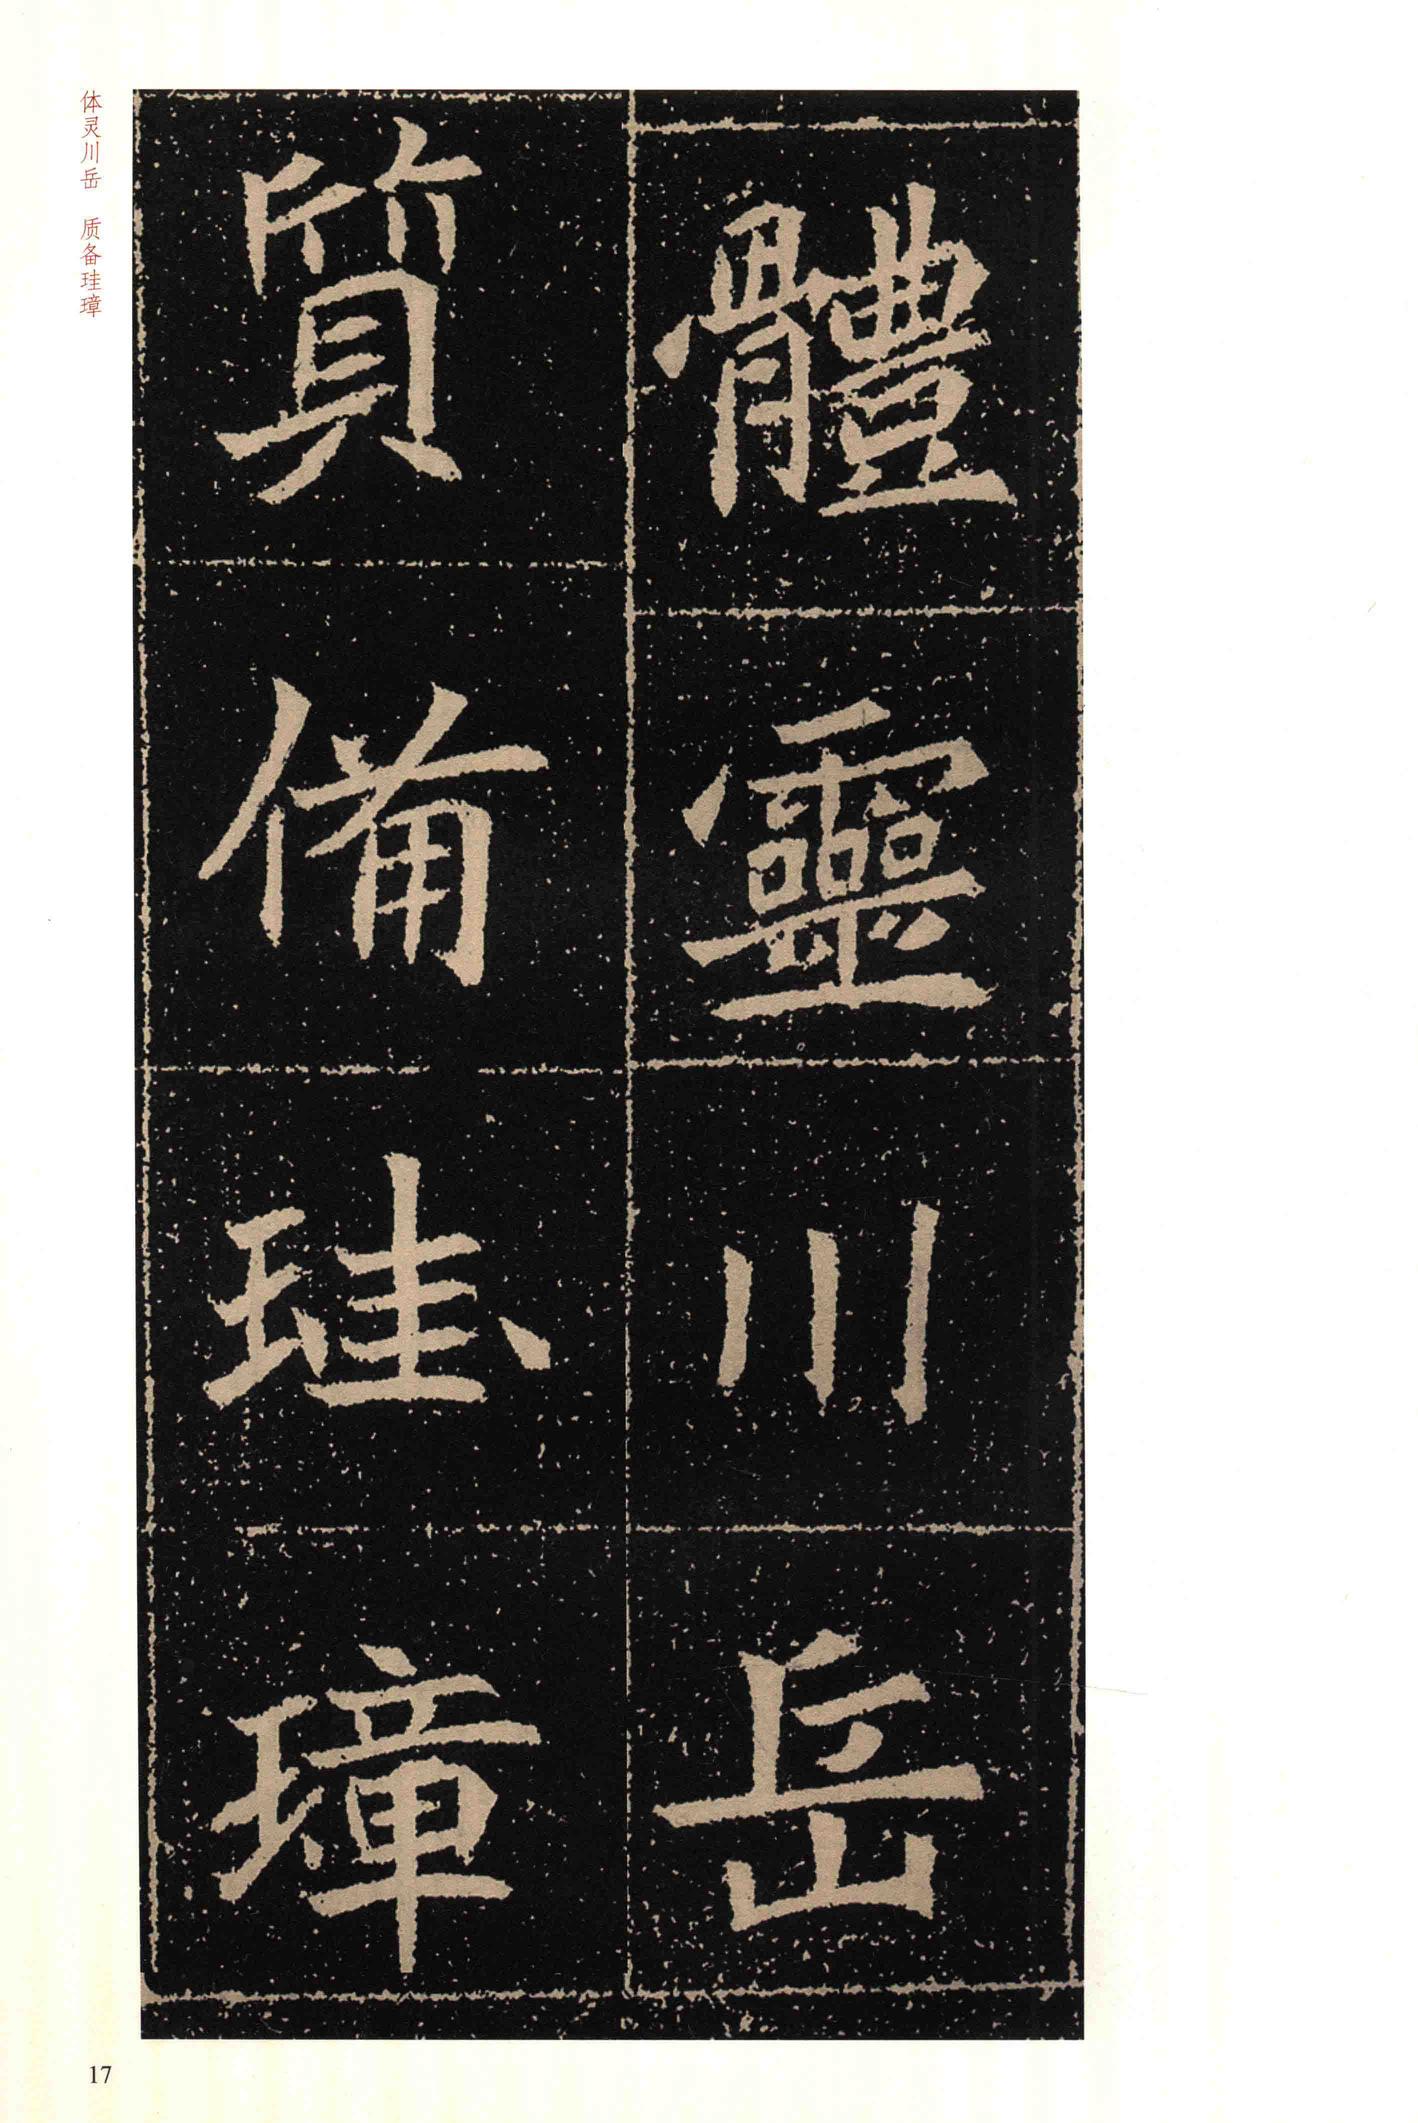 體靈川岳
質備珪璋
体灵川岳 质备珪璋
17